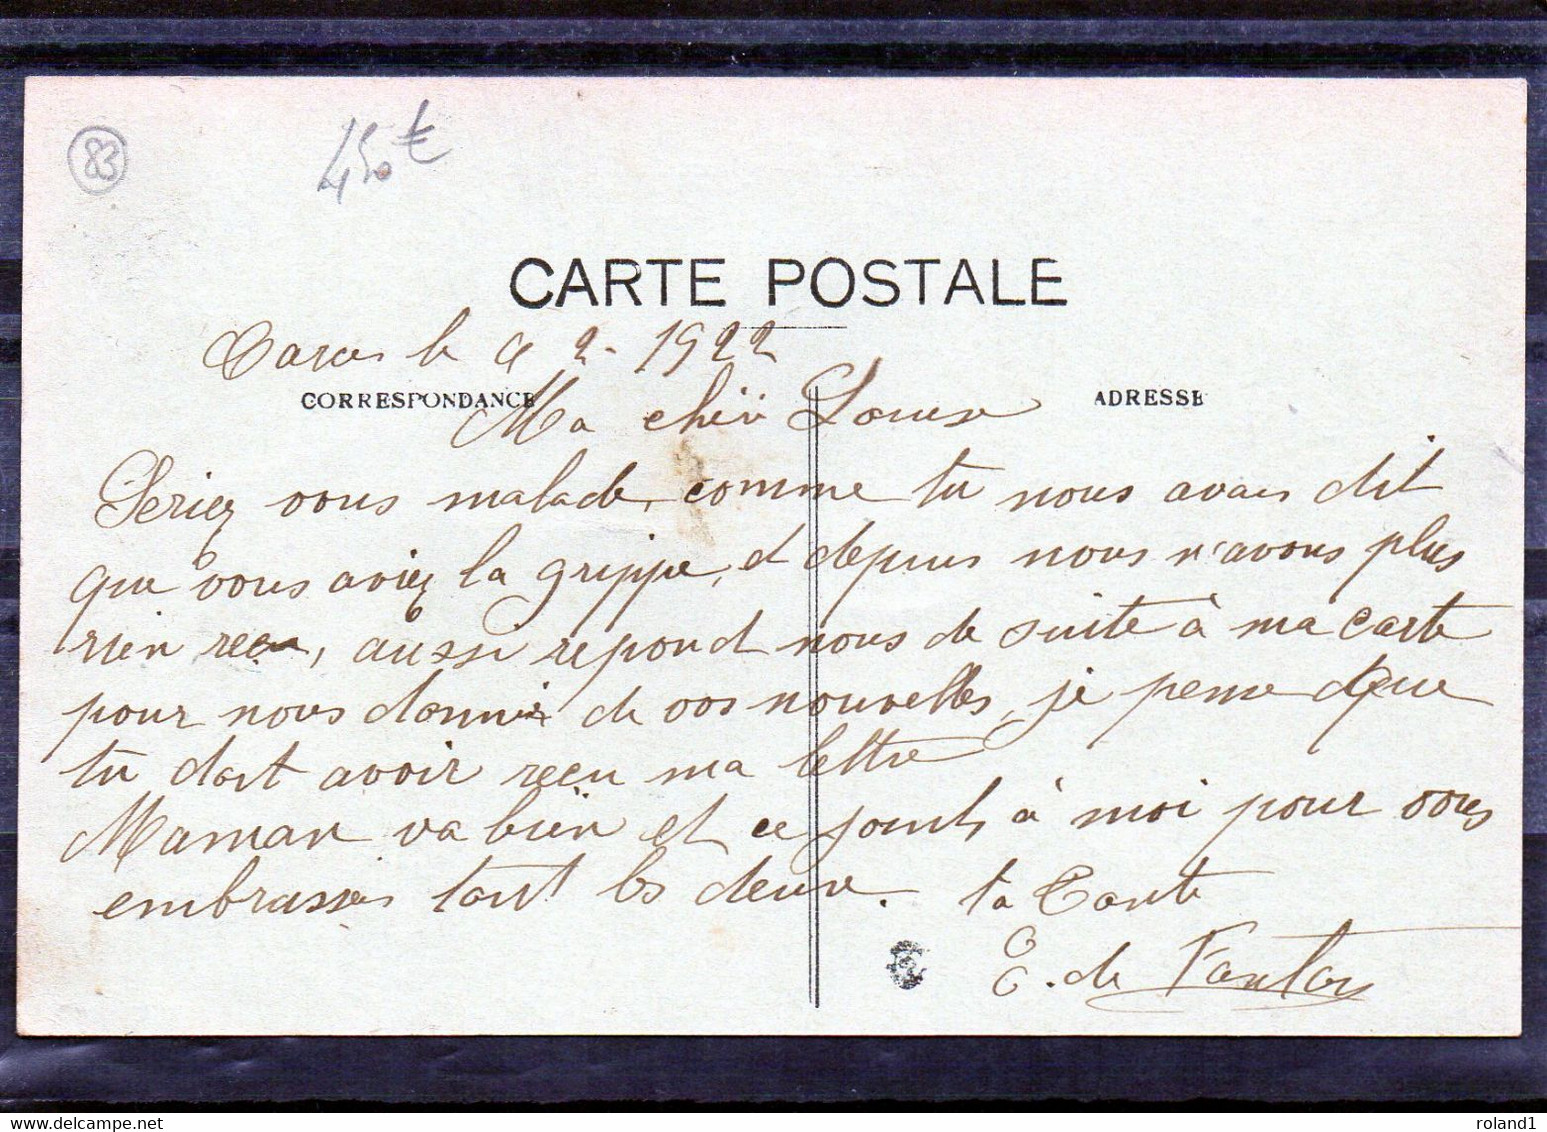 83
4,50€
CARTE POSTALE
le 9 2 - 1922
CORRESPONDANCE
ADRESSE
Ma chèr Louise
Seriez vous malade, comme tu nous avais dit
que vous aviez la grippe, et depuis nous n'avons plus
rien reçu, aussi repond nous de suite à ma carte
pour nous donner de vos nouvelles, je pense que
tu doit avoir reçu ma lettre
Maman va bien et ce joint à moi pour vous
embrasser tout les deux. ta Tante
E. de
roland1